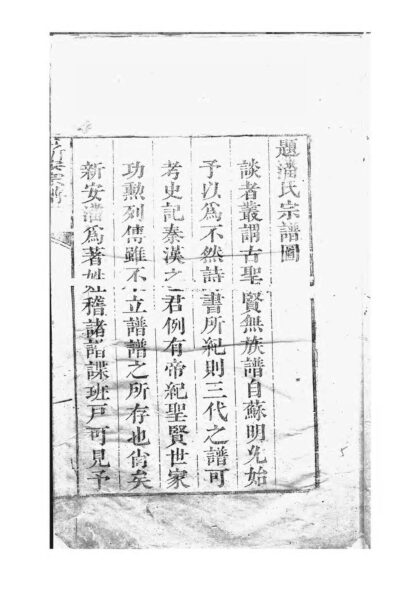 題潘氏宗譜圖
談者叢謂古聖賢無族譜自蘇明允始
予以為不然詩書所紀則三代之譜可
考史記秦漢之君例有帝紀聖賢世家
功勲列傳雖不立譜譜之所存也尚矣
新安潘為著姓稽諸譜諜班戸可見予